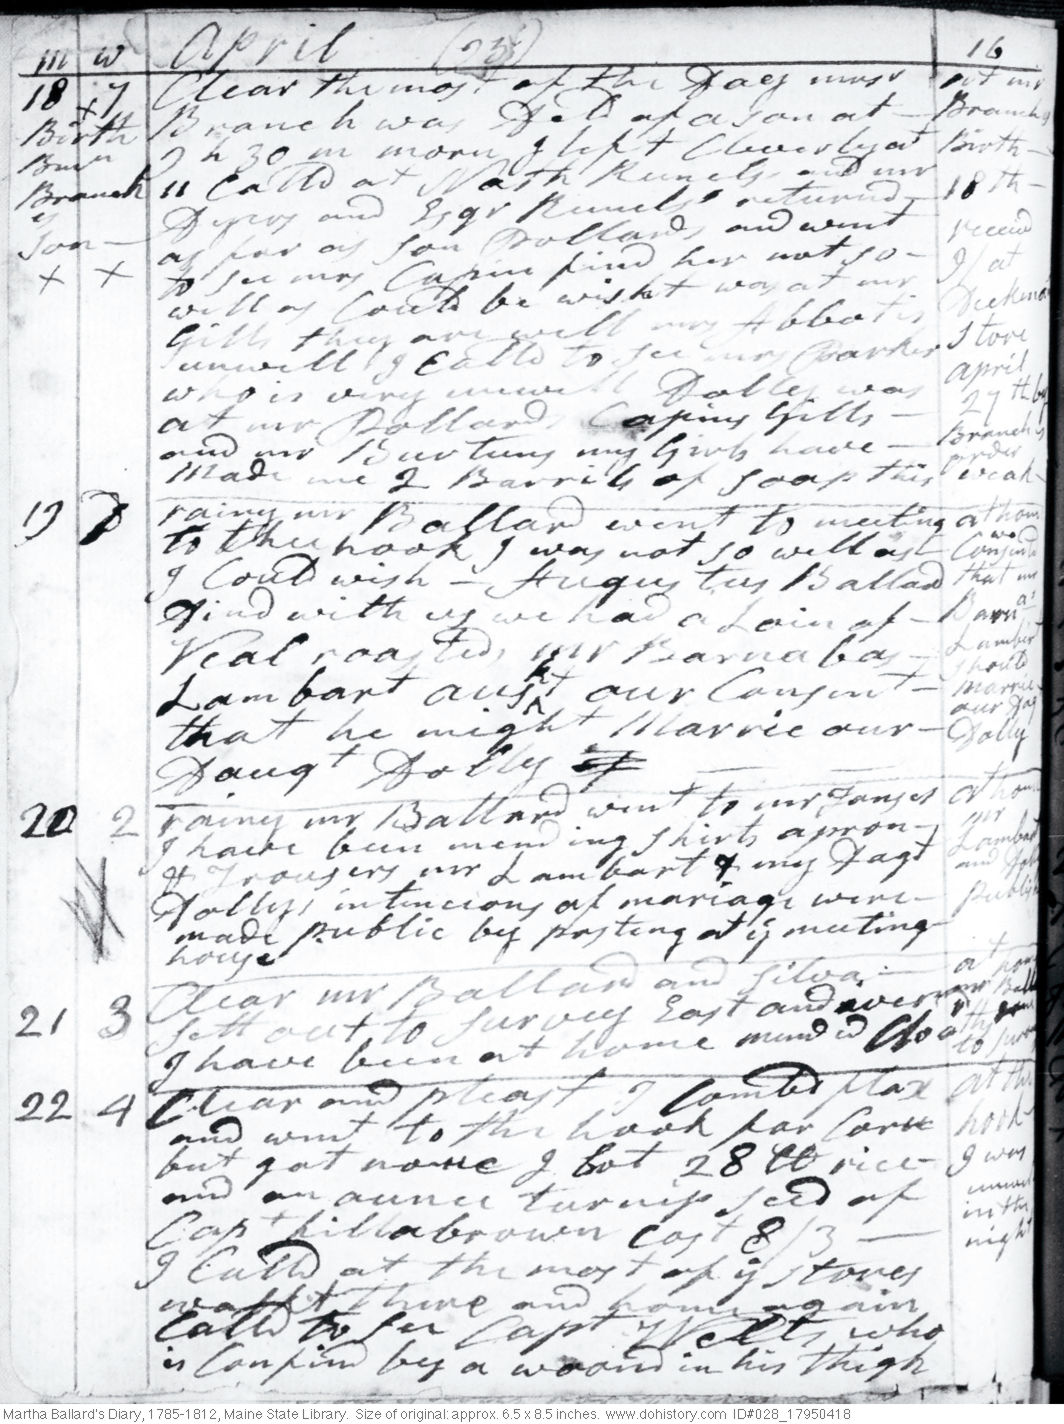 m w April (23) 16
18 7 Clear the most of the Day mrs
Birth Branch was Deld of a son at —
7 h 30 m morn I left Cleverly at
Branch 11 Calld at Nath Runels and mr
es Dyers and Esqr Runels returnd
Son — as far as son Pollards and went
x x to see mrs Capin find her not so —
well as Could be wisht was at mr
Gills they are well mrs Abbot is
unwell I Calld to see mrs Parker
who is very unwell Dolley was
at mr Pollards Capins Gills —
and mr Burtuns my Girls have —
Made me 2 Barrils of soap this weak
at mr
Branch's
Birth —
18th —
receivd
at
store
April
27th by
Branch's
order
19 rainy mr Ballard went to meeting
to the hook I was not so well as —
I Could wish — Augustus Ballard
Dind with us we had a Loin of —
Veal roasted, mr Barnabas —
Lambart ausht our Consent —
that he might Marrie our —
Daugt Dolly
at home
we
Consentd
that mr
Barna
Lambert
should
marrie
our Dag
Dolly
20 2 rainy mr Ballard went to mr
I have been mending shirts apron —
& Trousers mr Lambart & my Dagt
Dollys intincions of mariage were —
made Public by posting at ye meeting
house
at home
mr
Lambart
and Dolly
Publish
21 3 Clear mr Ballard and Silva —
sett out to survey East and
I have been at home mended
at home
mr Ball
to survey
22 4 Clear and pleast I Combd flax
and went to the hook for Corn
but got none I bot 28 lb rice —
and an ounce turnip seed of
Capt fillabrown Cost 8/3 —
I Calld at the most of ye stores
walkt there and home again
Calld to see Capt Wells, who
is Confind by a woond in his thigh
at the
hook —
I was
unwell
in the
night
Martha Ballard's Diary, 1785-1812, Maine State Library. Size of original: approx. 6.5 x 8.5 inches. www.dohistory.com ID#028_17950418